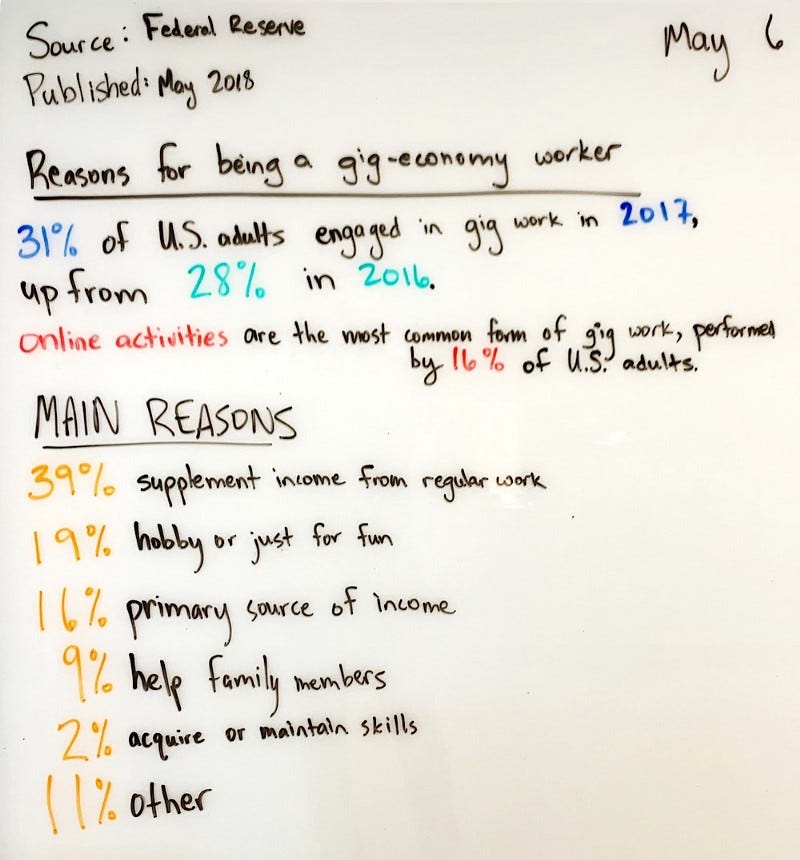 Source: Federal Reserve
May 6
Published: May 2018
Reasons for being a gig-economy worker
31% of U.S. adults engaged in gig work in 2017,
up from 28% in 2016.
online activities are the most common form of gig work, performed
by 16% of U.S. adults.
MAIN REASONS
39% supplement income from regular work
19% hobby or just for fun
16% primary source of income
9% help family members
2% acquire or maintain skills
11% other